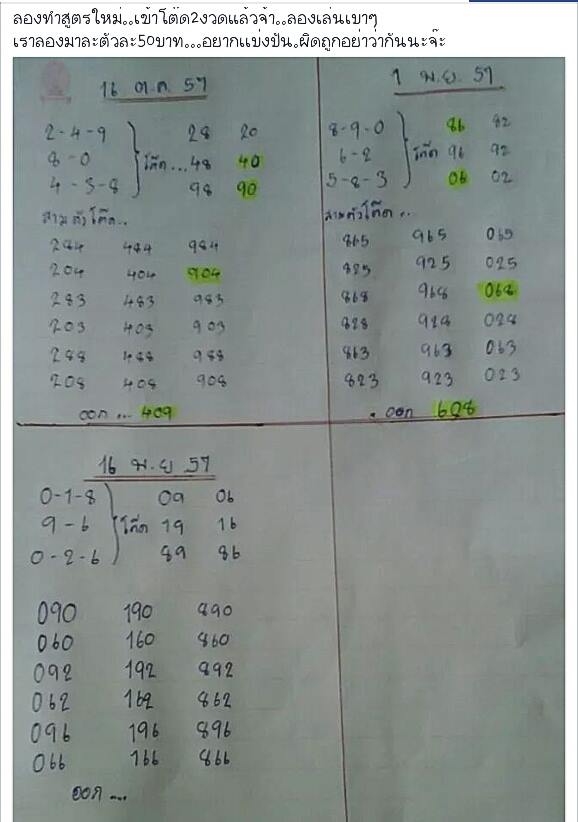 ลองทำสูตรใหม่..เข้าโต๊ด2งวดแล้วจ้า..ลองเล่นเบาๆ
เราลองมาละตัวละ50บาท...อยากแบ่งปัน.ผิดถูกอย่าว่ากันนะจ๊ะ
16 ต.ค. 57
2-4-9 28 20
8-0 โต๊ด... 48 40
4-3-8 98 90
สามตัวโต๊ด..
284 484 984
204 404 904
283 483 983
203 403 903
288 488 988
208 408 908
ออก ... 409
1 พ.ย. 57
8-9-0 86 82
6-2 โต๊ด 96 92
5-8-3 06 02
สามตัวโต๊ด..
865 965 065
825 925 025
868 968 068
828 928 028
863 963 063
823 923 023
. ออก 608
16 พ.ย 57
0-1-8 09 06
9-6 โต๊ด 19 16
0-2-6 89 86
090 190 890
060 160 860
092 192 892
062 162 862
096 196 896
066 166 866
ออก ...